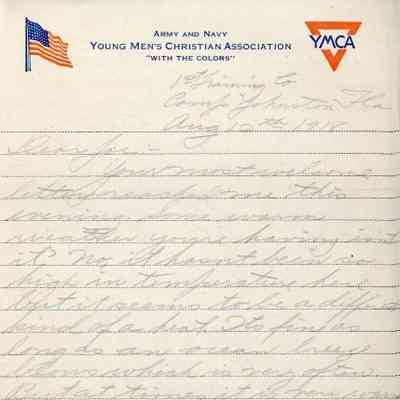 ARMY AND NAVY
YOUNG MEN'S CHRISTIAN ASSOCIATION
"WITH THE COLORS"
YMCA
1st Training Co
Camp Johnston, Fla
Aug 12th 1918
Dear :-
Your most welcome
letter reached me this
evening. Some warm
weather you're having isn't
it? No, it hasn't been so
high in temperature here
but it seems to be a diff
kind of a heat. Its fine as
long as an ocean breeze
blows which is very often.
But at times it is very warm